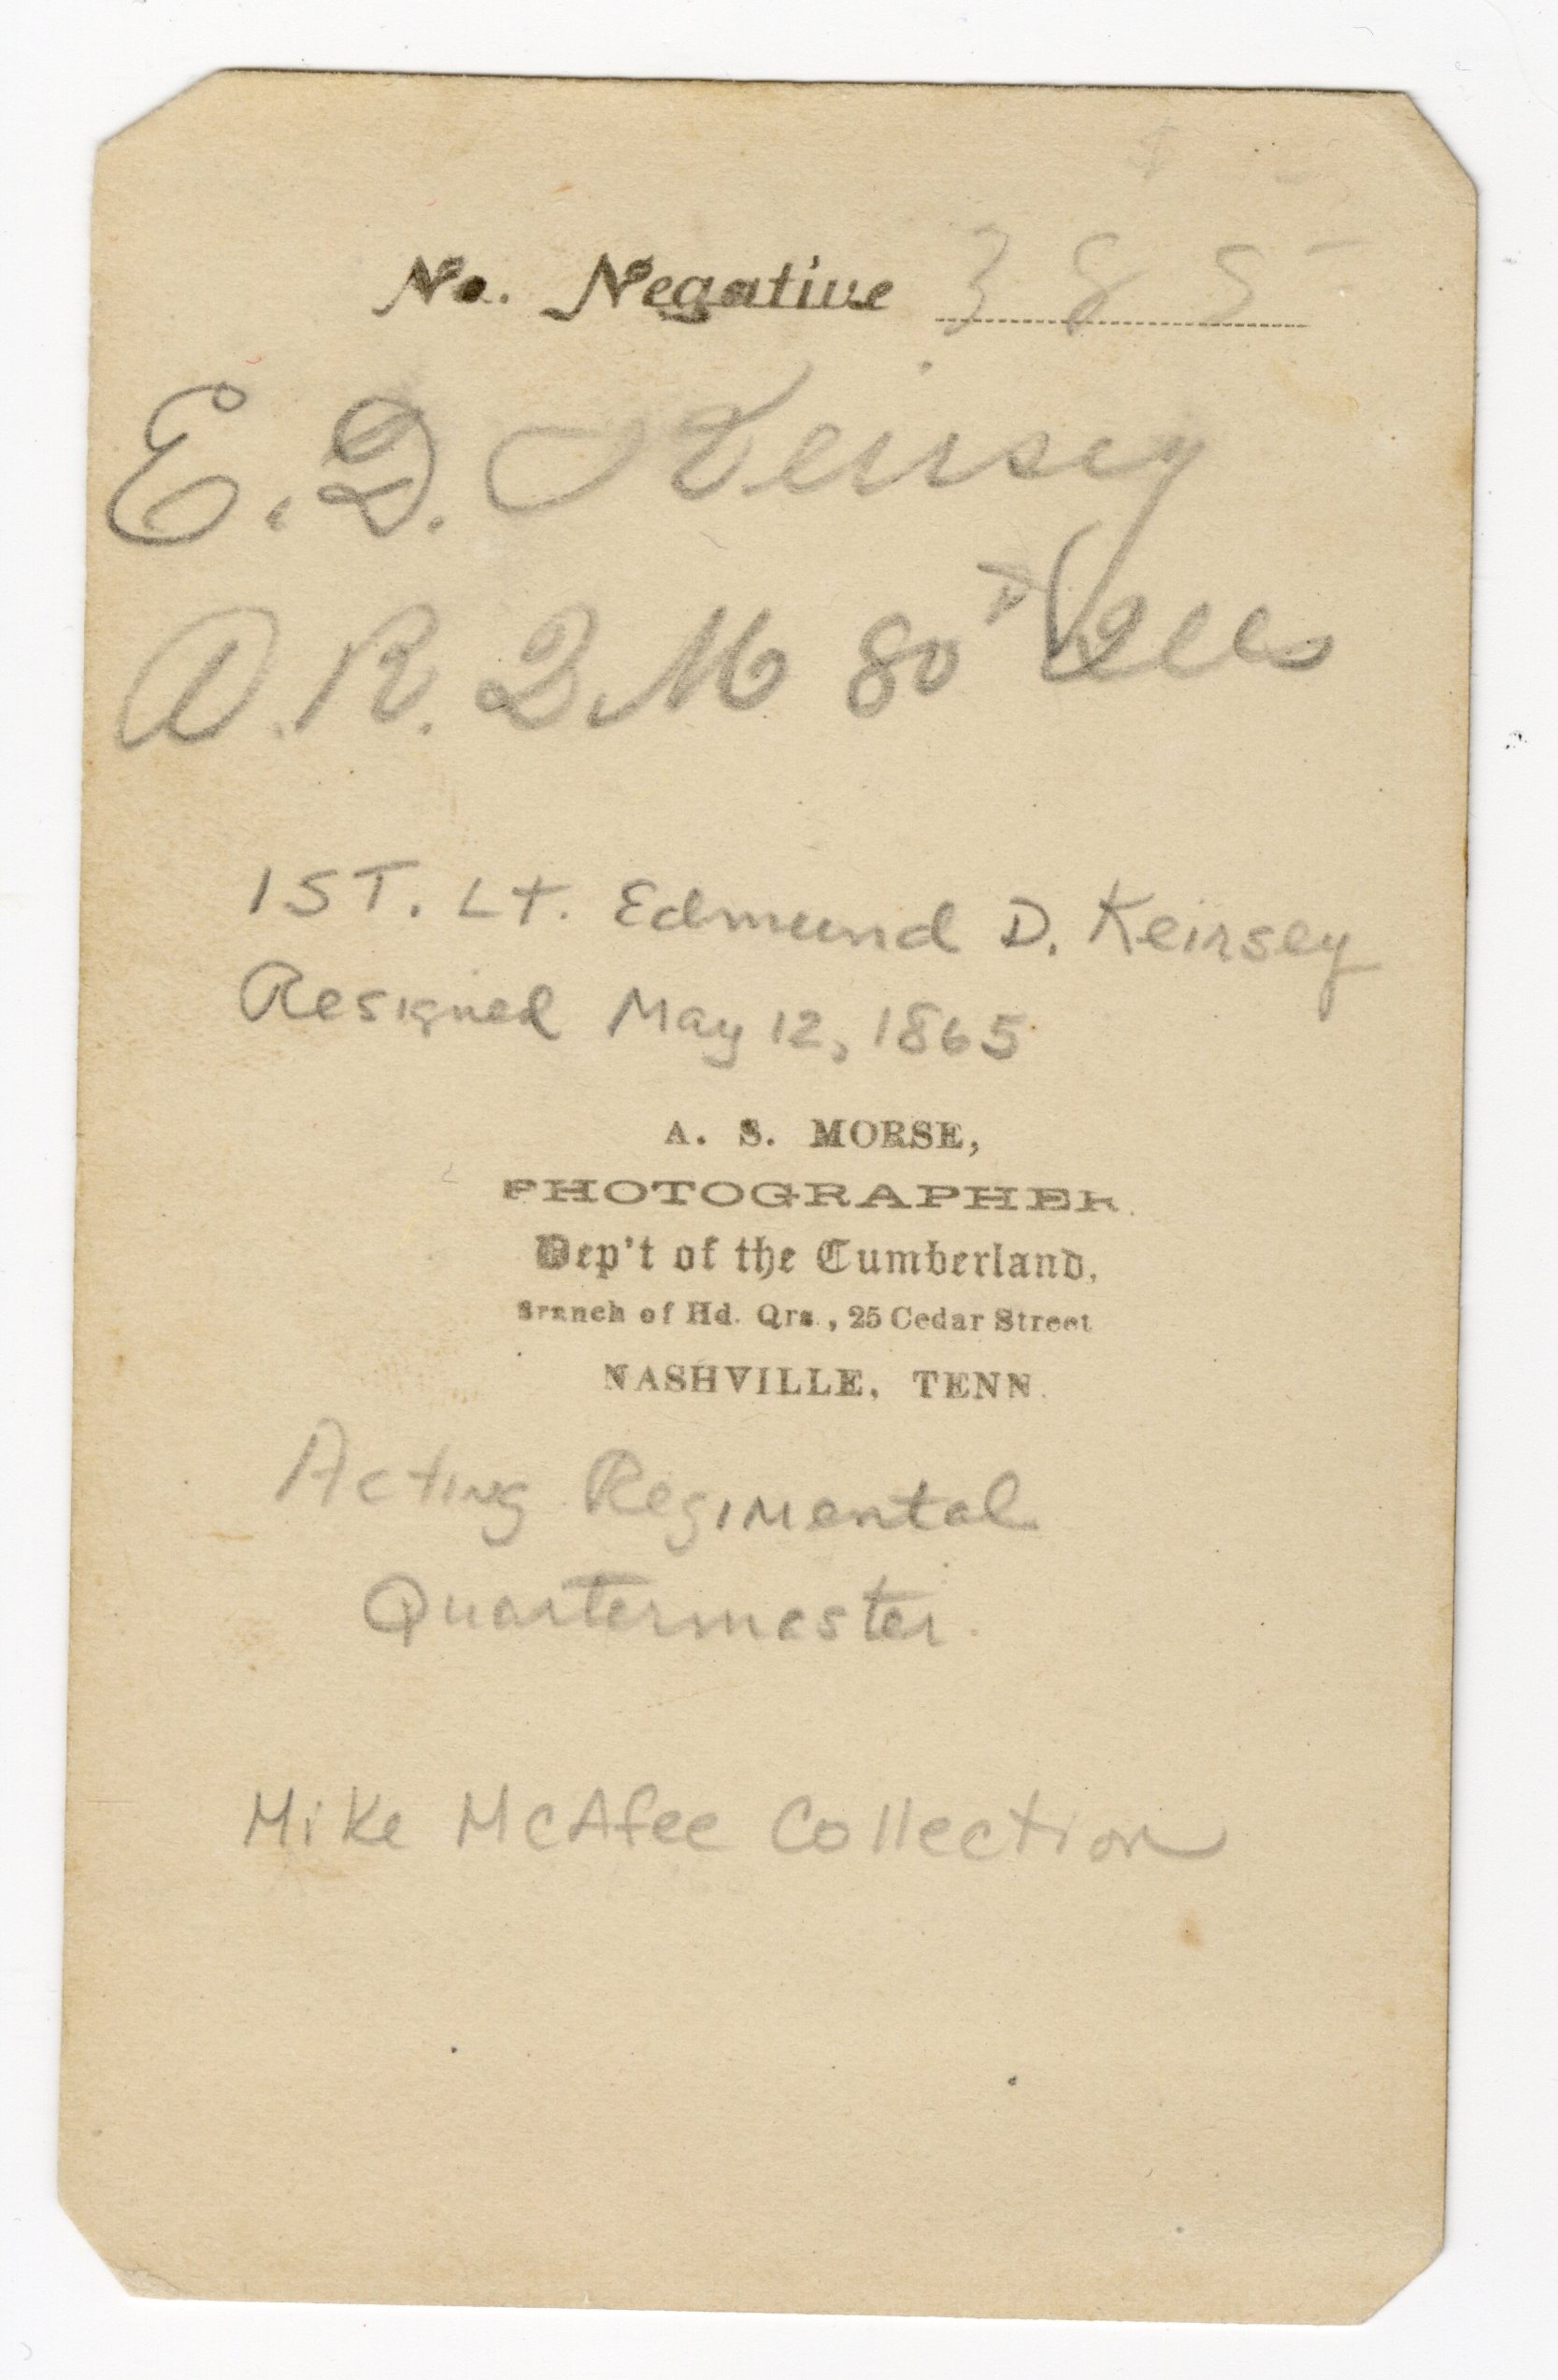 No. Negative 385
E. D. Keirsey
A. R. Q M 80th Ills
1ST. Lt. Edmund D. Keirsey
Resigned May 12, 1865
A. S. MORSE,
PHOTOGRAPHER.
Dep't of the Cumberland,
Branch of Hd. Qrs., 25 Cedar Street
NASHVILLE, TENN.
Acting Regimental
Quartermaster.
Mike McAfee Collection